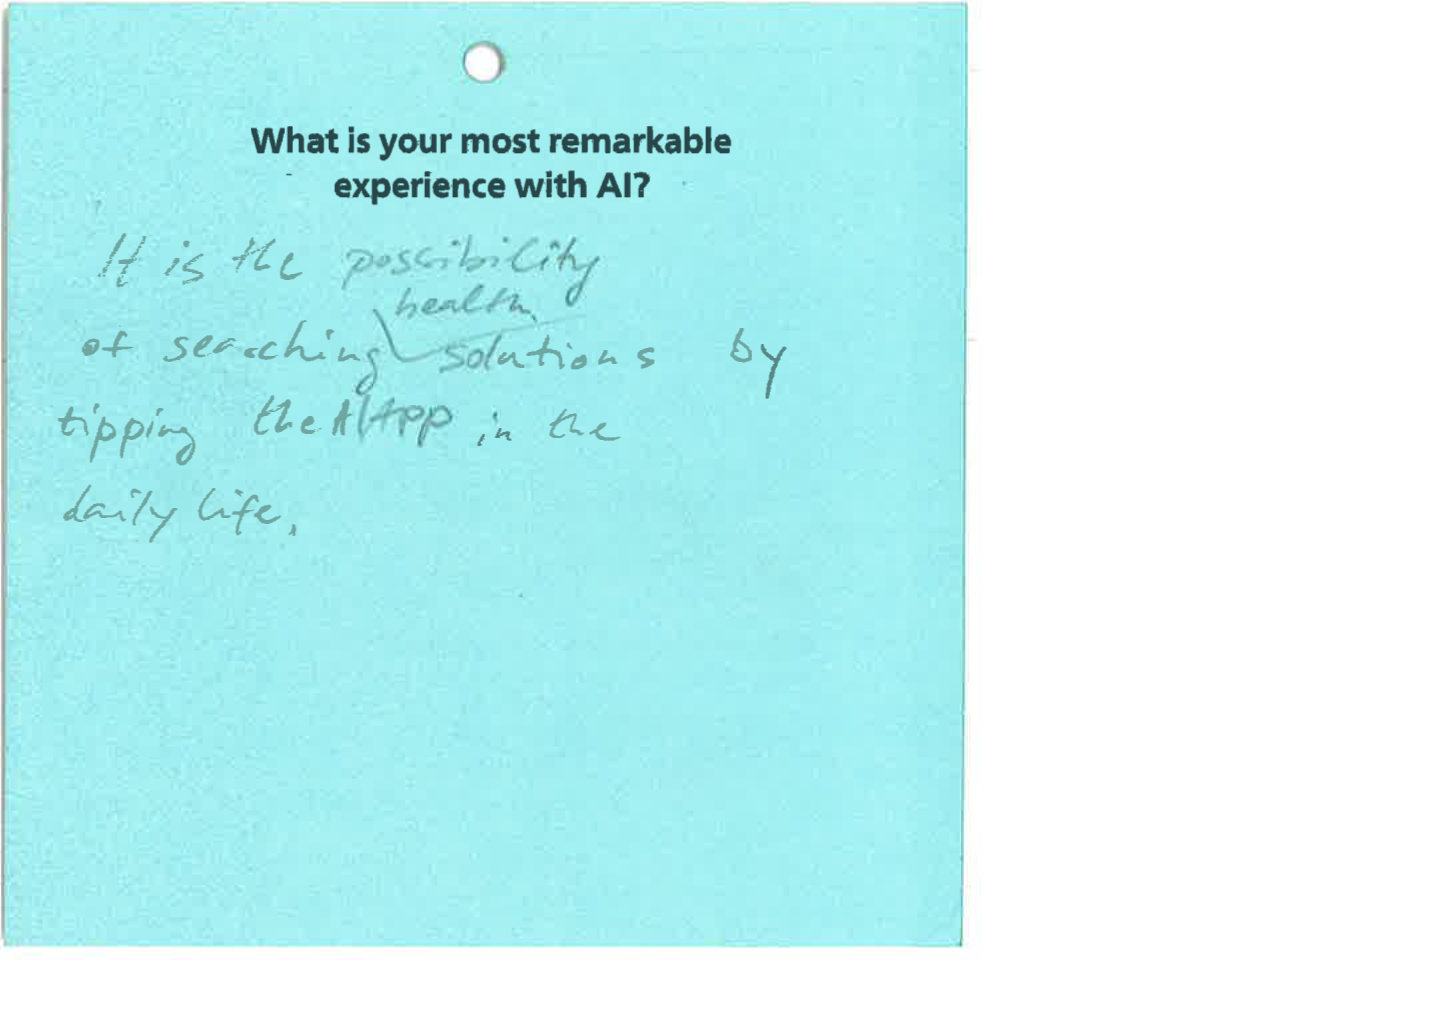 What is your most remarkable
experience with AI?
It is the possibility
health
of searching solutions by
tipping the AI App in the
daily life.